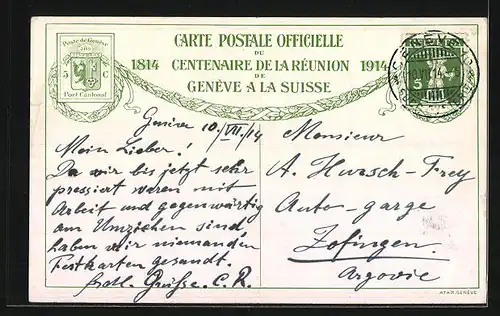 CARTE POSTALE OFFICIELLE
DU
1814 CENTENAIRE DE LA RÉUNION 1914
DE
GENÈVE A LA SUISSE
Poste de Genève
5 C
Port Cantonal
5
Genève 10/VII.14
Mein Lieber!
Da wir bis jetzt sehr
pressiert waren mit
Arbeit und gegenwärtig
am Umziehen sind,
haben wir niemanden
Festkarten gesandt.
Grüsse. C. R.
Monsieur
A. Frey
Auto-garge
Zofingen
Argovie
ATAR. GENÈVE